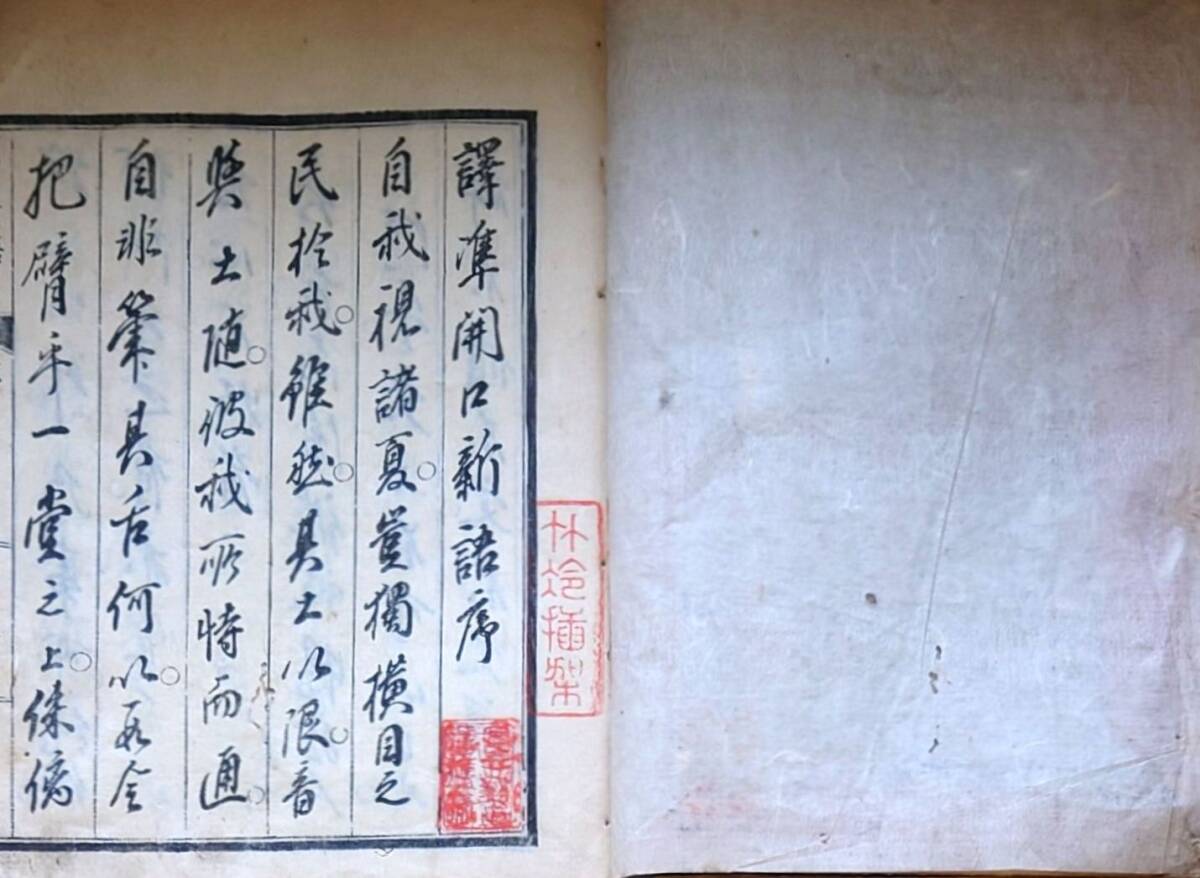 竹冷插架
譯準開口新語序
自我視諸夏。豈獨橫目之
民於我。雖然。其土以限。音
與土隨。彼我所恃而通。
自非筆其舌何以。
把臂乎一堂之上。